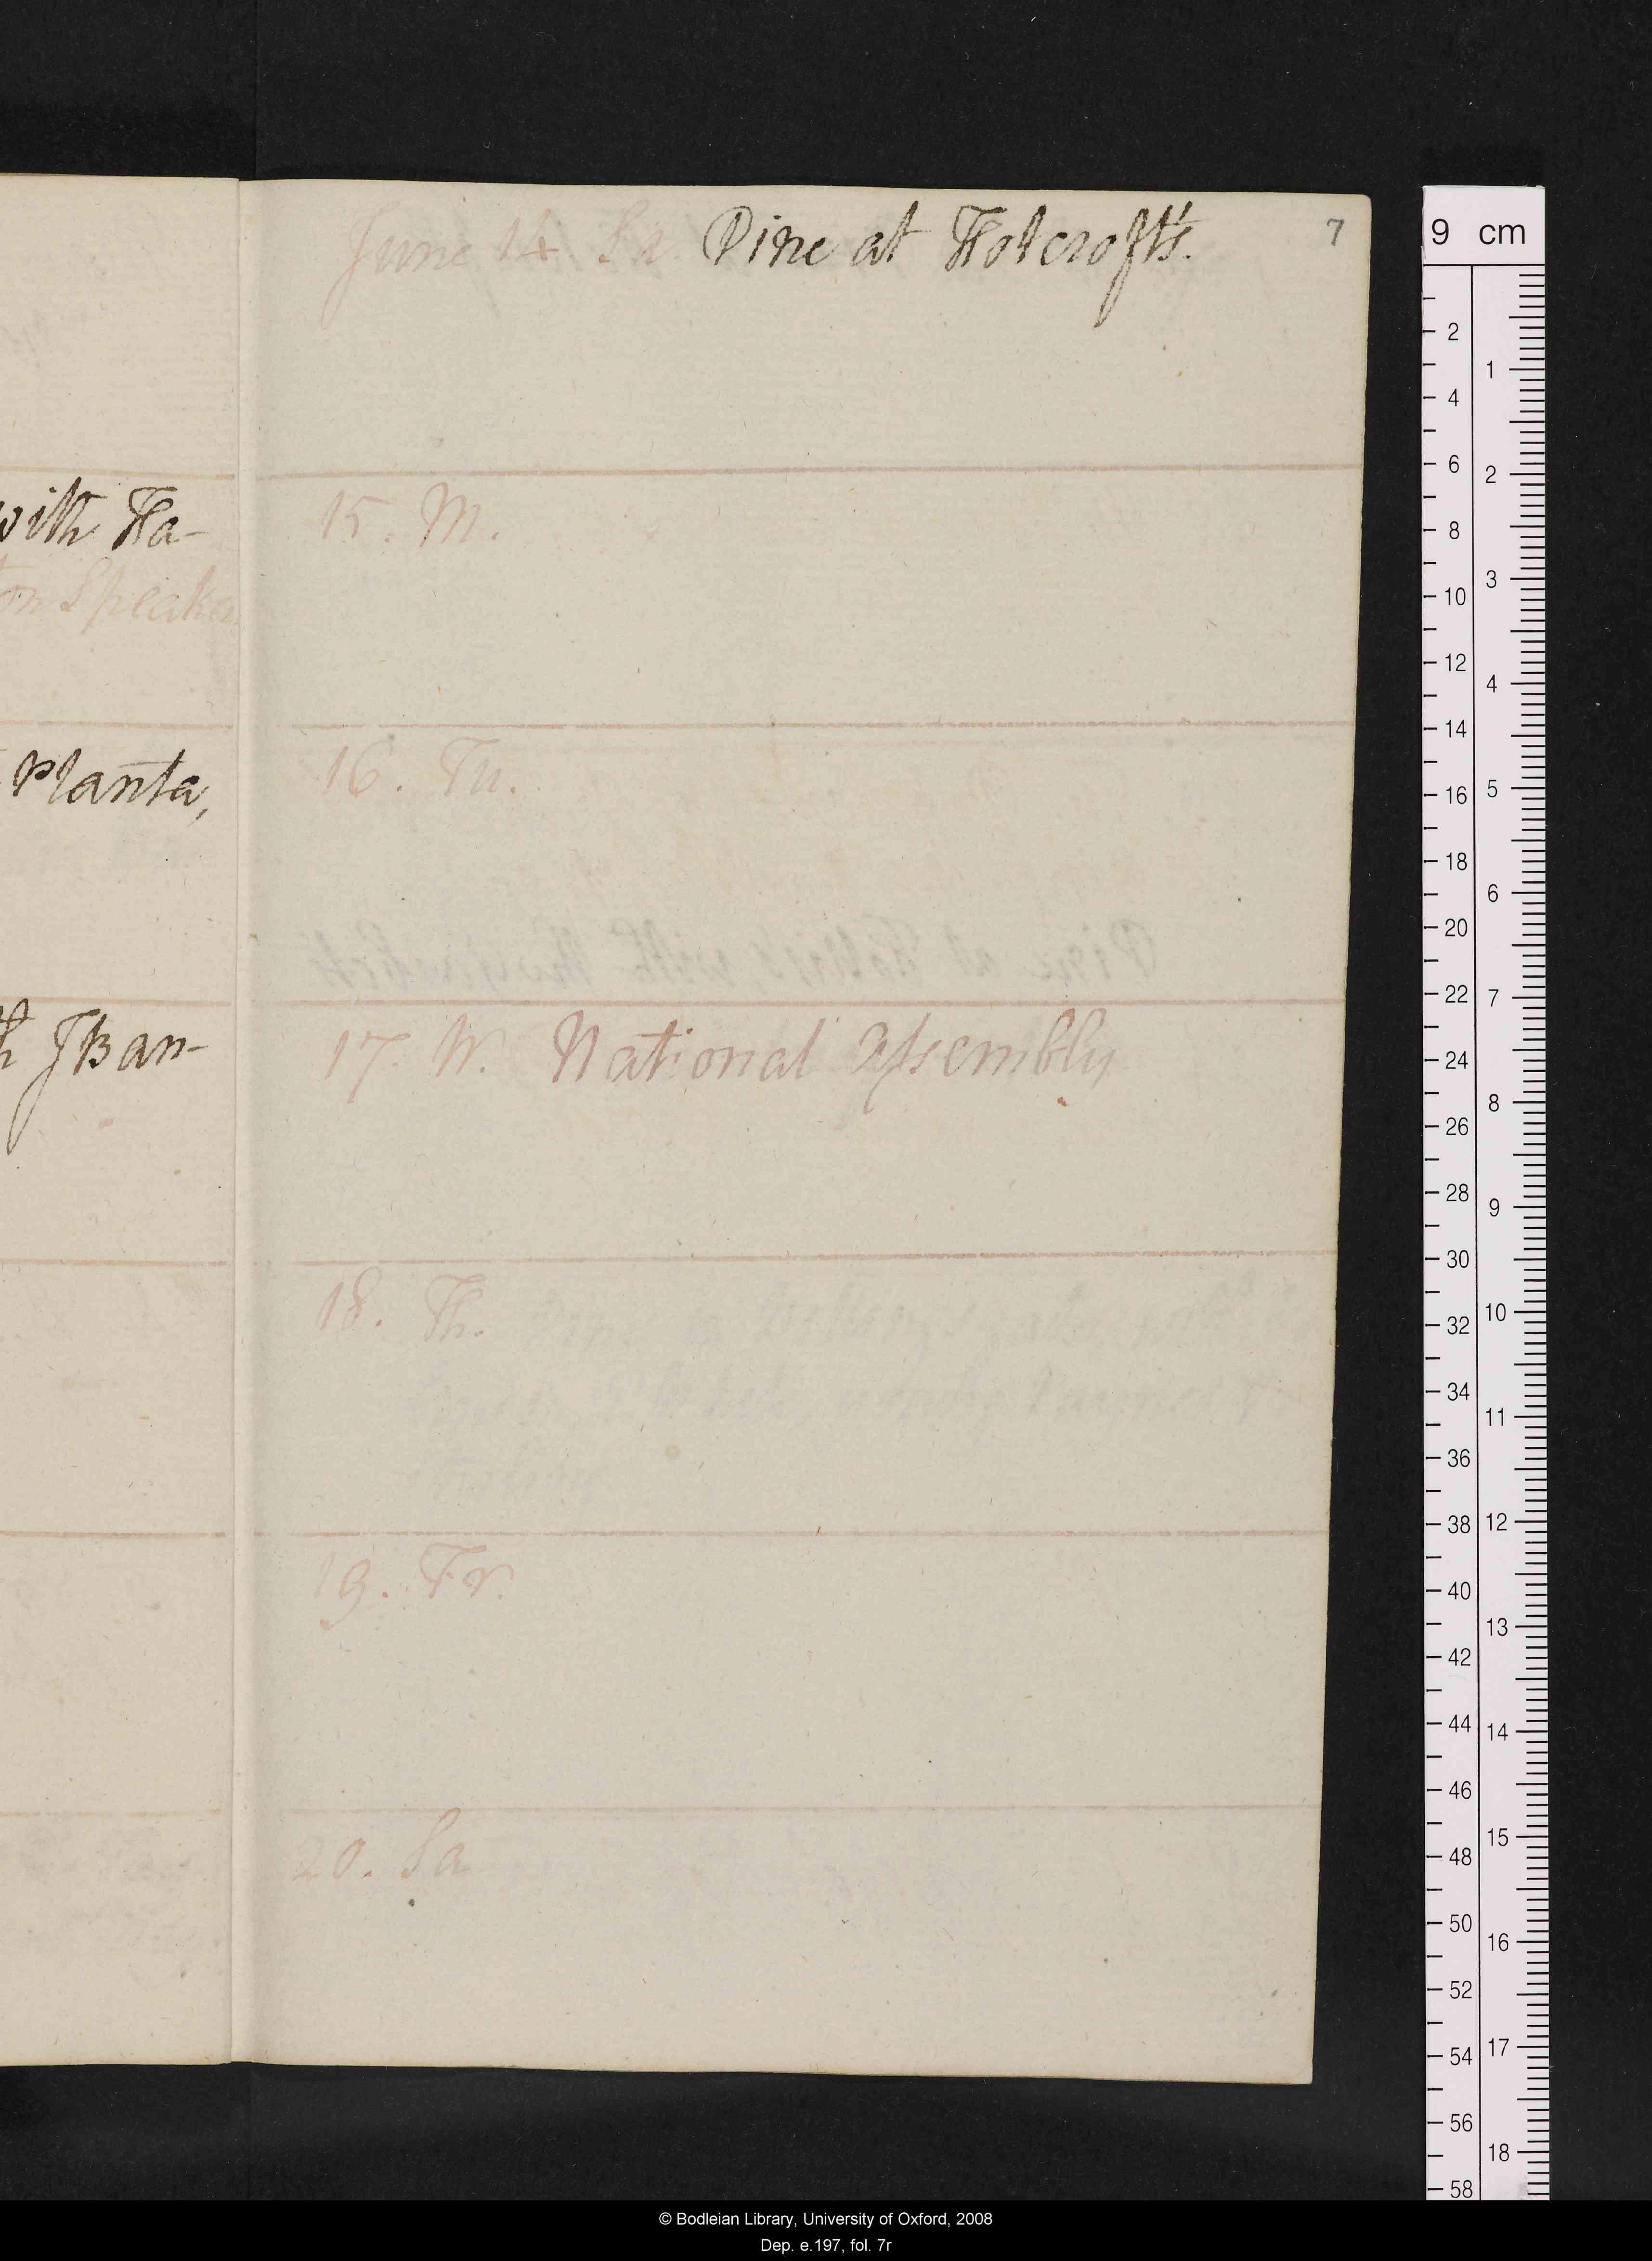 with Ha-
on Speaker
Planta,
h JBan-
June 14. Sa. Dine at Holcroft's.
7
15. M.
16. Tu.
17. W. National Assembly
18. Th.
19. Fr.
20. Sa
9 cm
2
4
6
8
10
12
14
16
18
20
22
24
26
28
30
32
34
36
38
40
42
44
46
48
50
52
54
56
58
1
2
3
4
5
6
7
8
9
10
11
12
13
14
15
16
17
18
© Bodleian Library, University of Oxford, 2008
Dep. e.197, fol. 7r